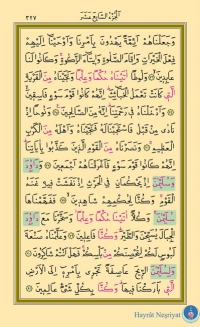 الجزء السابع عشر
٣٢٧
وَجَعَلْنَاهُمْ اَئِمَّةً يَهْدُونَ بِاَمْرِنَا وَاَوْحَيْنَٓا اِلَيْهِمْ
فِعْلَ الْخَيْرَاتِ وَاِقَامَ الصَّلٰوةِ وَا۪يتَٓاءَ الزَّكٰوةِ وَكَانُوا لَنَا
عَابِد۪ينَ وَلُوطًا اٰتَيْنَاهُ حُكْمًا وَعِلْمًا وَنَجَّيْنَاهُ مِنَ الْقَرْيَةِ
الَّت۪ي كَانَتْ تَعْمَلُ الْخَبَٓائِثَ اِنَّهُمْ كَانُوا قَوْمَ سَوْءٍ فَاسِق۪ينَ
وَاَدْخَلْنَاهُ ف۪ي رَحْمَتِنَا اِنَّهُ مِنَ الصَّالِح۪ينَ وَنُوحًا اِذْ
نَادٰى مِنْ قَبْلُ فَاسْتَجَبْنَا لَهُ فَنَجَّيْنَاهُ وَاَهْلَهُ مِنَ الْكَرْبِ
الْعَظ۪يمِ وَنَصَرْنَاهُ مِنَ الْقَوْمِ الَّذ۪ينَ كَذَّبُوا بِاٰيَاتِنَا
اِنَّهُمْ كَانُوا قَوْمَ سَوْءٍ فَاَغْرَقْنَاهُمْ اَجْمَع۪ينَ وَدَاوُدَ
وَسُلَيْمٰنَ اِذْ يَحْكُمَانِ فِي الْحَرْثِ اِذْ نَفَشَتْ ف۪يهِ غَنَمُ
الْقَوْمِ وَكُنَّا لِحُكْمِهِمْ شَاهِد۪ينَ فَفَهَّمْنَاهَا
سُلَيْمٰنَ وَكُلًّا اٰتَيْنَا حُكْمًا وَعِلْمًا وَسَخَّرْنَا مَعَ دَاوُدَ
الْجِبَالَ يُسَبِّحْنَ وَالطَّيْرَ وَكُنَّا فَاعِل۪ينَ وَعَلَّمْنَاهُ صَنْعَةَ
لَبُوسٍ لَكُمْ لِتُحْصِنَكُمْ مِنْ بَأْسِكُمْ فَهَلْ اَنْتُمْ شَاكِرُونَ
وَلِسُلَيْمٰنَ الرّ۪يحَ عَاصِفَةً تَجْر۪ي بِاَمْرِه۪ٓ اِلَى الْاَرْضِ
الَّت۪ي بَارَكْنَا ف۪يهَا وَكُنَّا بِكُلِّ شَيْءٍ عَالِم۪ينَ
Hayrât Neşriyat